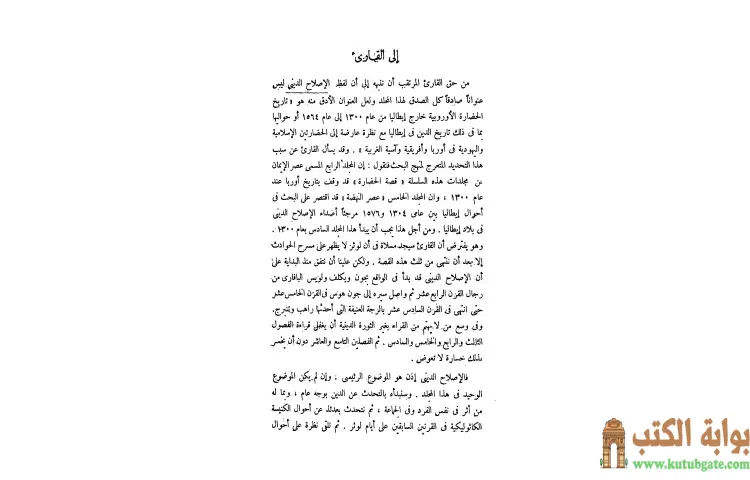 إلى القارئ
من حق القارئ المرتقب أن ننبهه إلى أن لفظ الإصلاح الديني ليس
عنواناً صادقاً كل الصدق لهذا المجلد ولعل العنوان الأدق منه هو « تاريخ
الحضارة الأوروبية خارج إيطاليا من عام ١٣٠٠ إلى عام ١٥٦٤ أو حواليها
بما فى ذلك تاريخ الدين فى إيطاليا مع نظرة عارضة إلى الحضارتين الإسلامية
واليهودية فى أوربا وأفريقية وآسية الغربية » . وقد يسأل القارئ عن سبب
هذا التحديد المتعرج لمنهج البحث فنقول : إن المجلد الرابع المسمى عصر الإيمان
من مجلدات هذه السلسلة « قصة الحضارة » قد وقف بتاريخ أوربا عند
عام ١٣٠٠ ، وان المجلد الخامس « عصر النهضة » قد اقتصر على البحث فى
أحوال إيطاليا بين عامى ١٣٠٤ و١٥٧٦ مرجئاً أصداء الإصلاح الدينى
فى بلاد إيطاليا . ومن أجل هذا يجب أن يبدأ هذا المجلد السادس بعام ١٣٠٠ .
وهو يفترض أن القارئ سيجد مسلاة فى أن لوثر لا يظهر على مسرح الحوادث
إلا بعد أن ننتهى من ثلث هذه القصة . ولكن علينا أن نتفق منذ البداية على
أن الإصلاح الدينى قد بدأ فى الواقع بجون ويكلف ولويس البافارى من
رجال القرن الرابع عشر ثم واصل سيره إلى جون هوس فى القرن الخامس عشر
حتى انتهى فى القرن السادس عشر بالرجة العنيفة التى أحدثها راهب وتنبرج.
وفى وسع من لا يهتم من القراء بغير الثورة الدينية أن يغفل قراءة الفصول
الثالث والرابع والخامس والسادس . ثم الفصلين التاسع والعاشر دون أن يخسر
بذلك خسارة لا تعوض .
فالإصلاح الدينى إذن هو الموضوع الرئيسى . وإن لم يكن الموضوع
الوحيد فى هذا المجلد . وسنبدأه بالتحدث عن الدين بوجه عام ، وبما له
من أثر فى نفس الفرد وفى الجماعة ، ثم نتحدث بعدئذ عن أحوال الكنيسة
الكاثوليكية فى القرنين السابقين على أيام لوثر . ثم نلقى نظرة على أحوال
بوابة الكتب
www.kutubgate.com